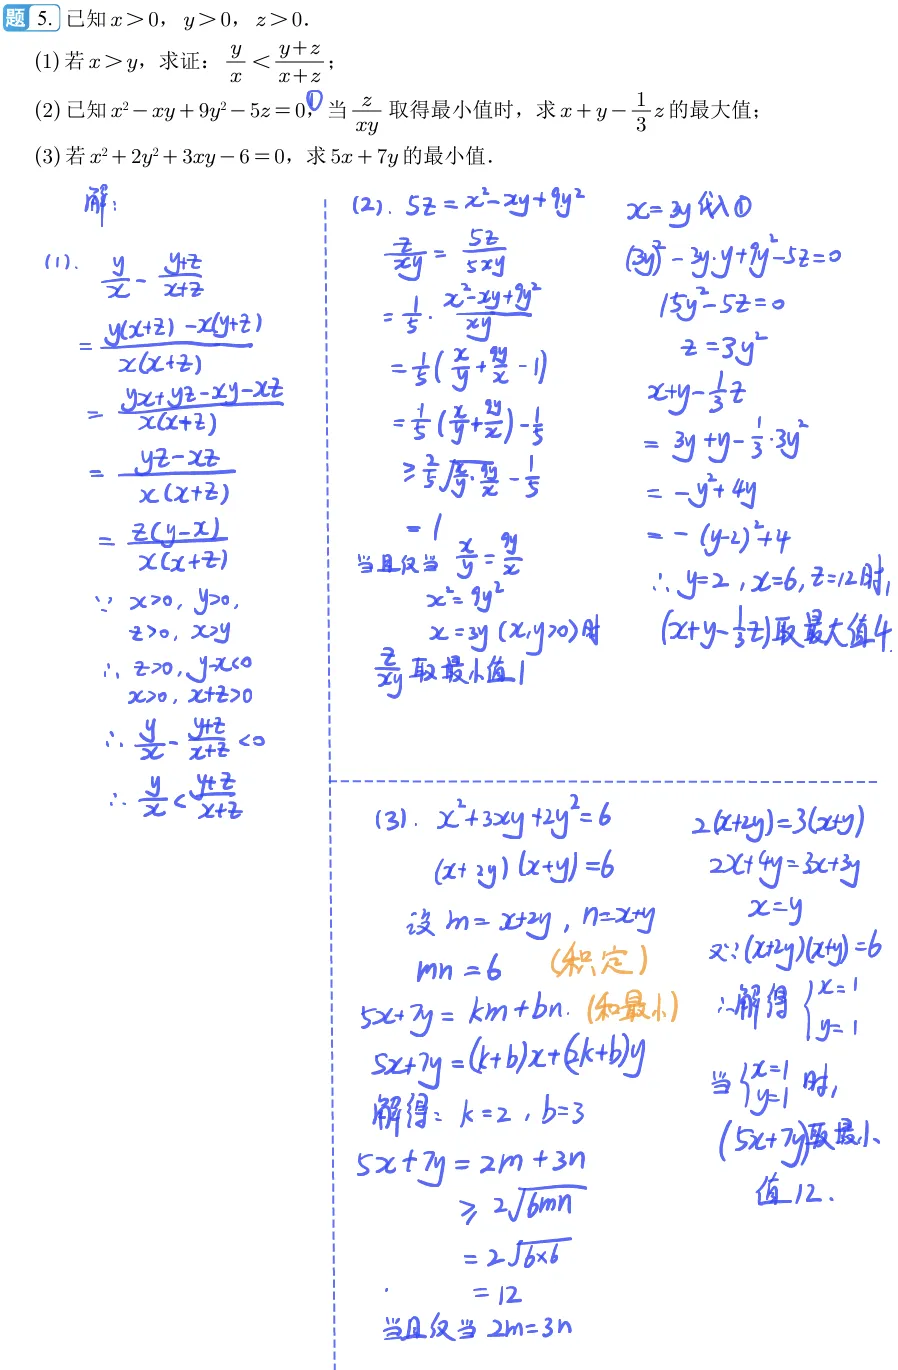 题 5. 已知 x>0, y>0, z>0.
(1) 若 x>y, 求证: y/x < (y+z)/(x+z);
(2) 已知 x²-xy+9y²-5z=0①, 当 z/xy 取得最小值时, 求 x+y-1/3 z 的最大值;
(3) 若 x²+2y²+3xy-6=0, 求 5x+7y 的最小值.
解:
(1). y/x - (y+z)/(x+z)
= (y(x+z)-x(y+z))/(x(x+z))
= (yx+yz-xy-xz)/(x(x+z))
= (yz-xz)/(x(x+z))
= z(y-x)/(x(x+z))
∵ x>0, y>0,
z>0, x>y
∴ z>0, y-x<0
x>0, x+z>0
∴ y/x - (y+z)/(x+z) <0
∴ y/x < (y+z)/(x+z)
(2). 5z=x²-xy+9y²
z/xy = 5z/5xy
= 1/5 · (x²-xy+9y²)/xy
= 1/5 (x/y + 9y/x - 1)
= 1/5 (x/y + 9y/x) - 1/5
≥ 2/5 √(x/y · 9y/x) - 1/5
= 1
当且仅当 x/y = 9y/x
x²=9y²
x=3y (x,y>0) 时
z/xy 取最小值1
x=3y 代入①
(3y)²-3y·y+9y²-5z=0
15y²-5z=0
z=3y²
x+y-1/3 z
= 3y+y-1/3·3y²
= -y²+4y
= -(y-2)²+4
∴ y=2, x=6, z=12时,
(x+y-1/3 z)取最大值4.
(3). x²+3xy+2y²=6
(x+2y)(x+y)=6
设 m=x+2y, n=x+y
mn=6 (积定)
5x+7y=km+bn. (和最小)
5x+7y=(k+b)x+(2k+b)y
解得: k=2, b=3
5x+7y=2m+3n
≥ 2√(6mn)
= 2√(6×6)
= 12
当且仅当 2m=3n
2(x+2y)=3(x+y)
2x+4y=3x+3y
x=y
又∵(x+2y)(x+y)=6
∴解得 { x=1
y=1
当 { x=1
y=1 时,
(5x+7y)取最小
值12.